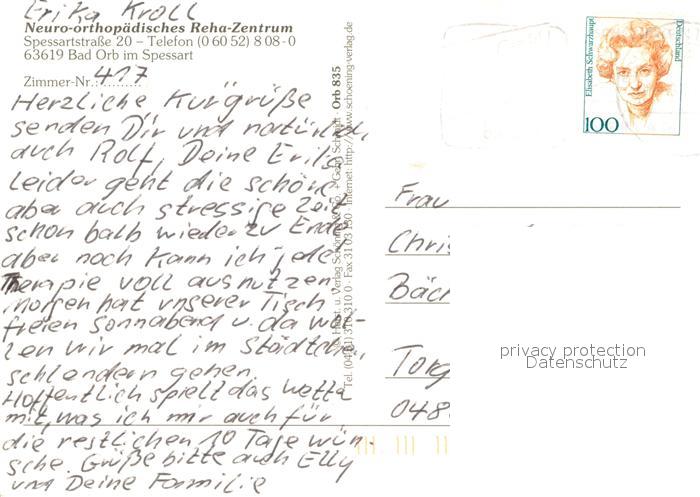 Erika Kroll
Neuro-orthopädisches Reha-Zentrum
Spessartstraße 20 – Telefon (0 60 52) 8 08-0
63619 Bad Orb im Spessart
Zimmer-Nr.: 417
Herzliche Kurgrüße
senden Dir und natürlich
auch Rolf, Deine Erika
Leider geht die schöne
aber auch stressige Zeit
schon balb wieder zu Ende
aber noch kann ich jede
Therapie voll ausnutzen
Morgen hat unserer Tisch
freien Sonnabend u. da wol-
len wir mal im Städtchen
schlendern gehen.
Hoffentlich spielt das Wetter
mit, was ich mir auch für
die restlichen 10 Tage wün-
sche. Grüße bitte auch Elly
und Deine Familie
Orb 835
Internet: http://www.schoening-verlag.de
Elisabeth Schwarzhaupt
Deutschland
100
Frau
Chris
Bäc
Torg
048
privacy protection
Datenschutz